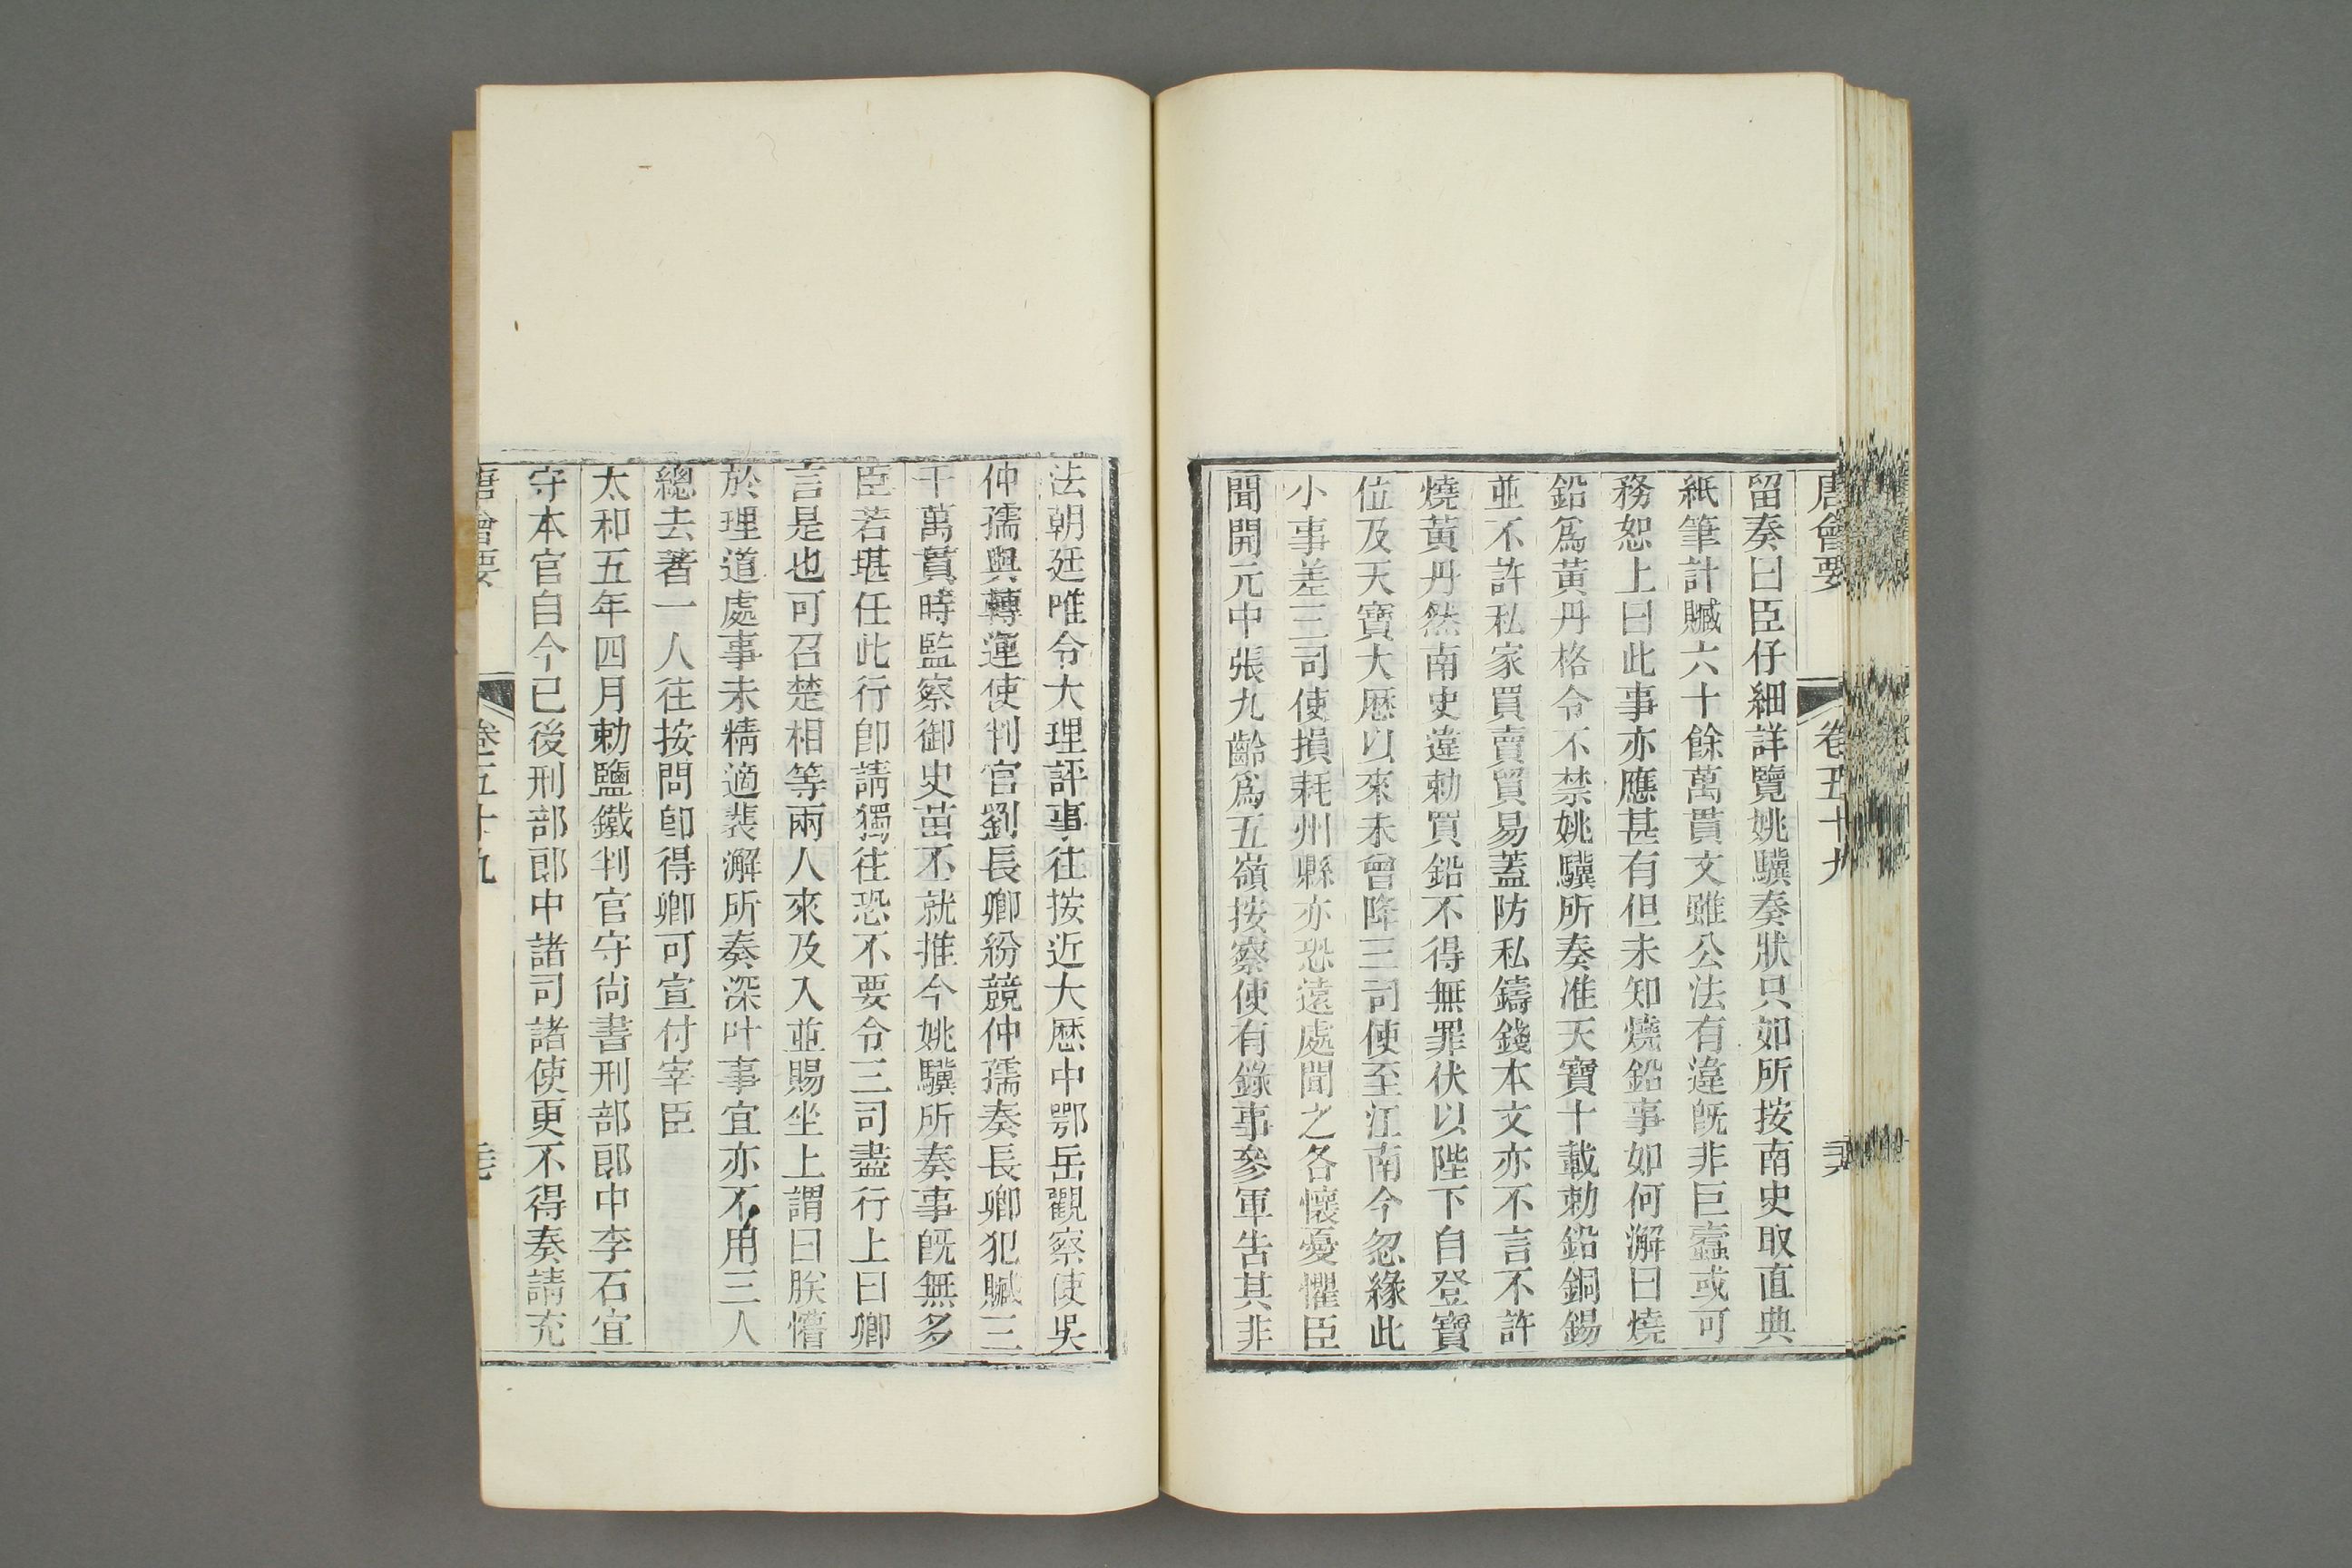 唐會要 卷五十九
留奏曰臣仔細詳覽姚驥奏狀只如所按南史取直典
紙筆計贓六十餘萬貫文雖公法有違旣非巨蠹或可
務恕上曰此事亦應甚有但未知燒鉛事如何澥曰燒
鉛爲黃丹格令不禁姚驥所奏准天寶十載勅鉛銅錫
並不許私家買賣貿易蓋防私鑄錢本文亦不言不許
燒黃丹然南史違勅買鉛不得無罪伏以陛下自登寶
位及天寶大厯以來未曾降三司使至江南今忽緣此
小事差三司使損耗州縣亦恐遠處聞之各懷憂懼臣
聞開元中張九齡爲五嶺按察使有錄事參軍告其非
法朝廷唯令大理評事往按近大厯中鄂岳觀察使吳
仲孺與轉運使判官劉長卿紛競仲孺奏長卿犯贓三
千萬貫時監察御史苗丕就推今姚驥所奏事旣無多
臣若堪任此行卽請獨往恐不要令三司盡行上曰卿
言是也可召楚相等兩人來及入並賜坐上謂曰朕懵
於理道處事未精適裴澥所奏深叶事宜亦不用三人
總去著一人往按問卽得卿可宣付宰臣
太和五年四月勅鹽鐵判官守尚書刑部郎中李石宜
守本官自今已後刑部郎中諸司諸使更不得奏請充
唐會要 卷五十九